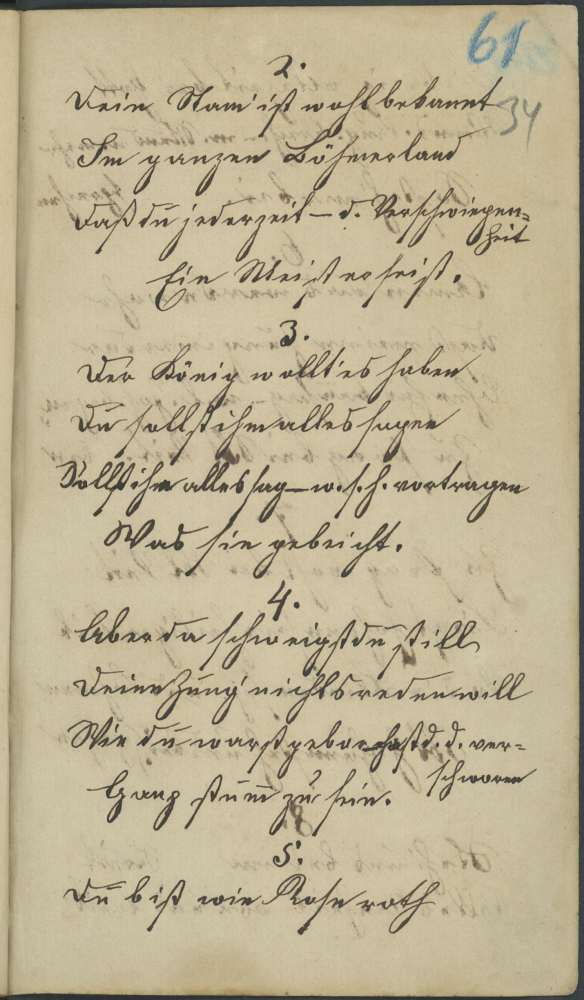 61
34
2.
Dein Stam̅ ist wohl bekannt
Im ganzen Böhmerland
Daß du jederzeit – d. Verschwiegen=
heit
Ein Meister seist.
3.
Der König wollt es haben
Du sollst ihm alles sagen
Sollst ihm alles sag – w. s. h. vortragen
Was sie gebeicht.
4.
Aber da schweigst du still
Deine Zung' nichts reden will
Wie du warst gebor hast d. d. ver=
schworen
Ganz stum̅ zu sein.
5.
Du bist wie Rose roth